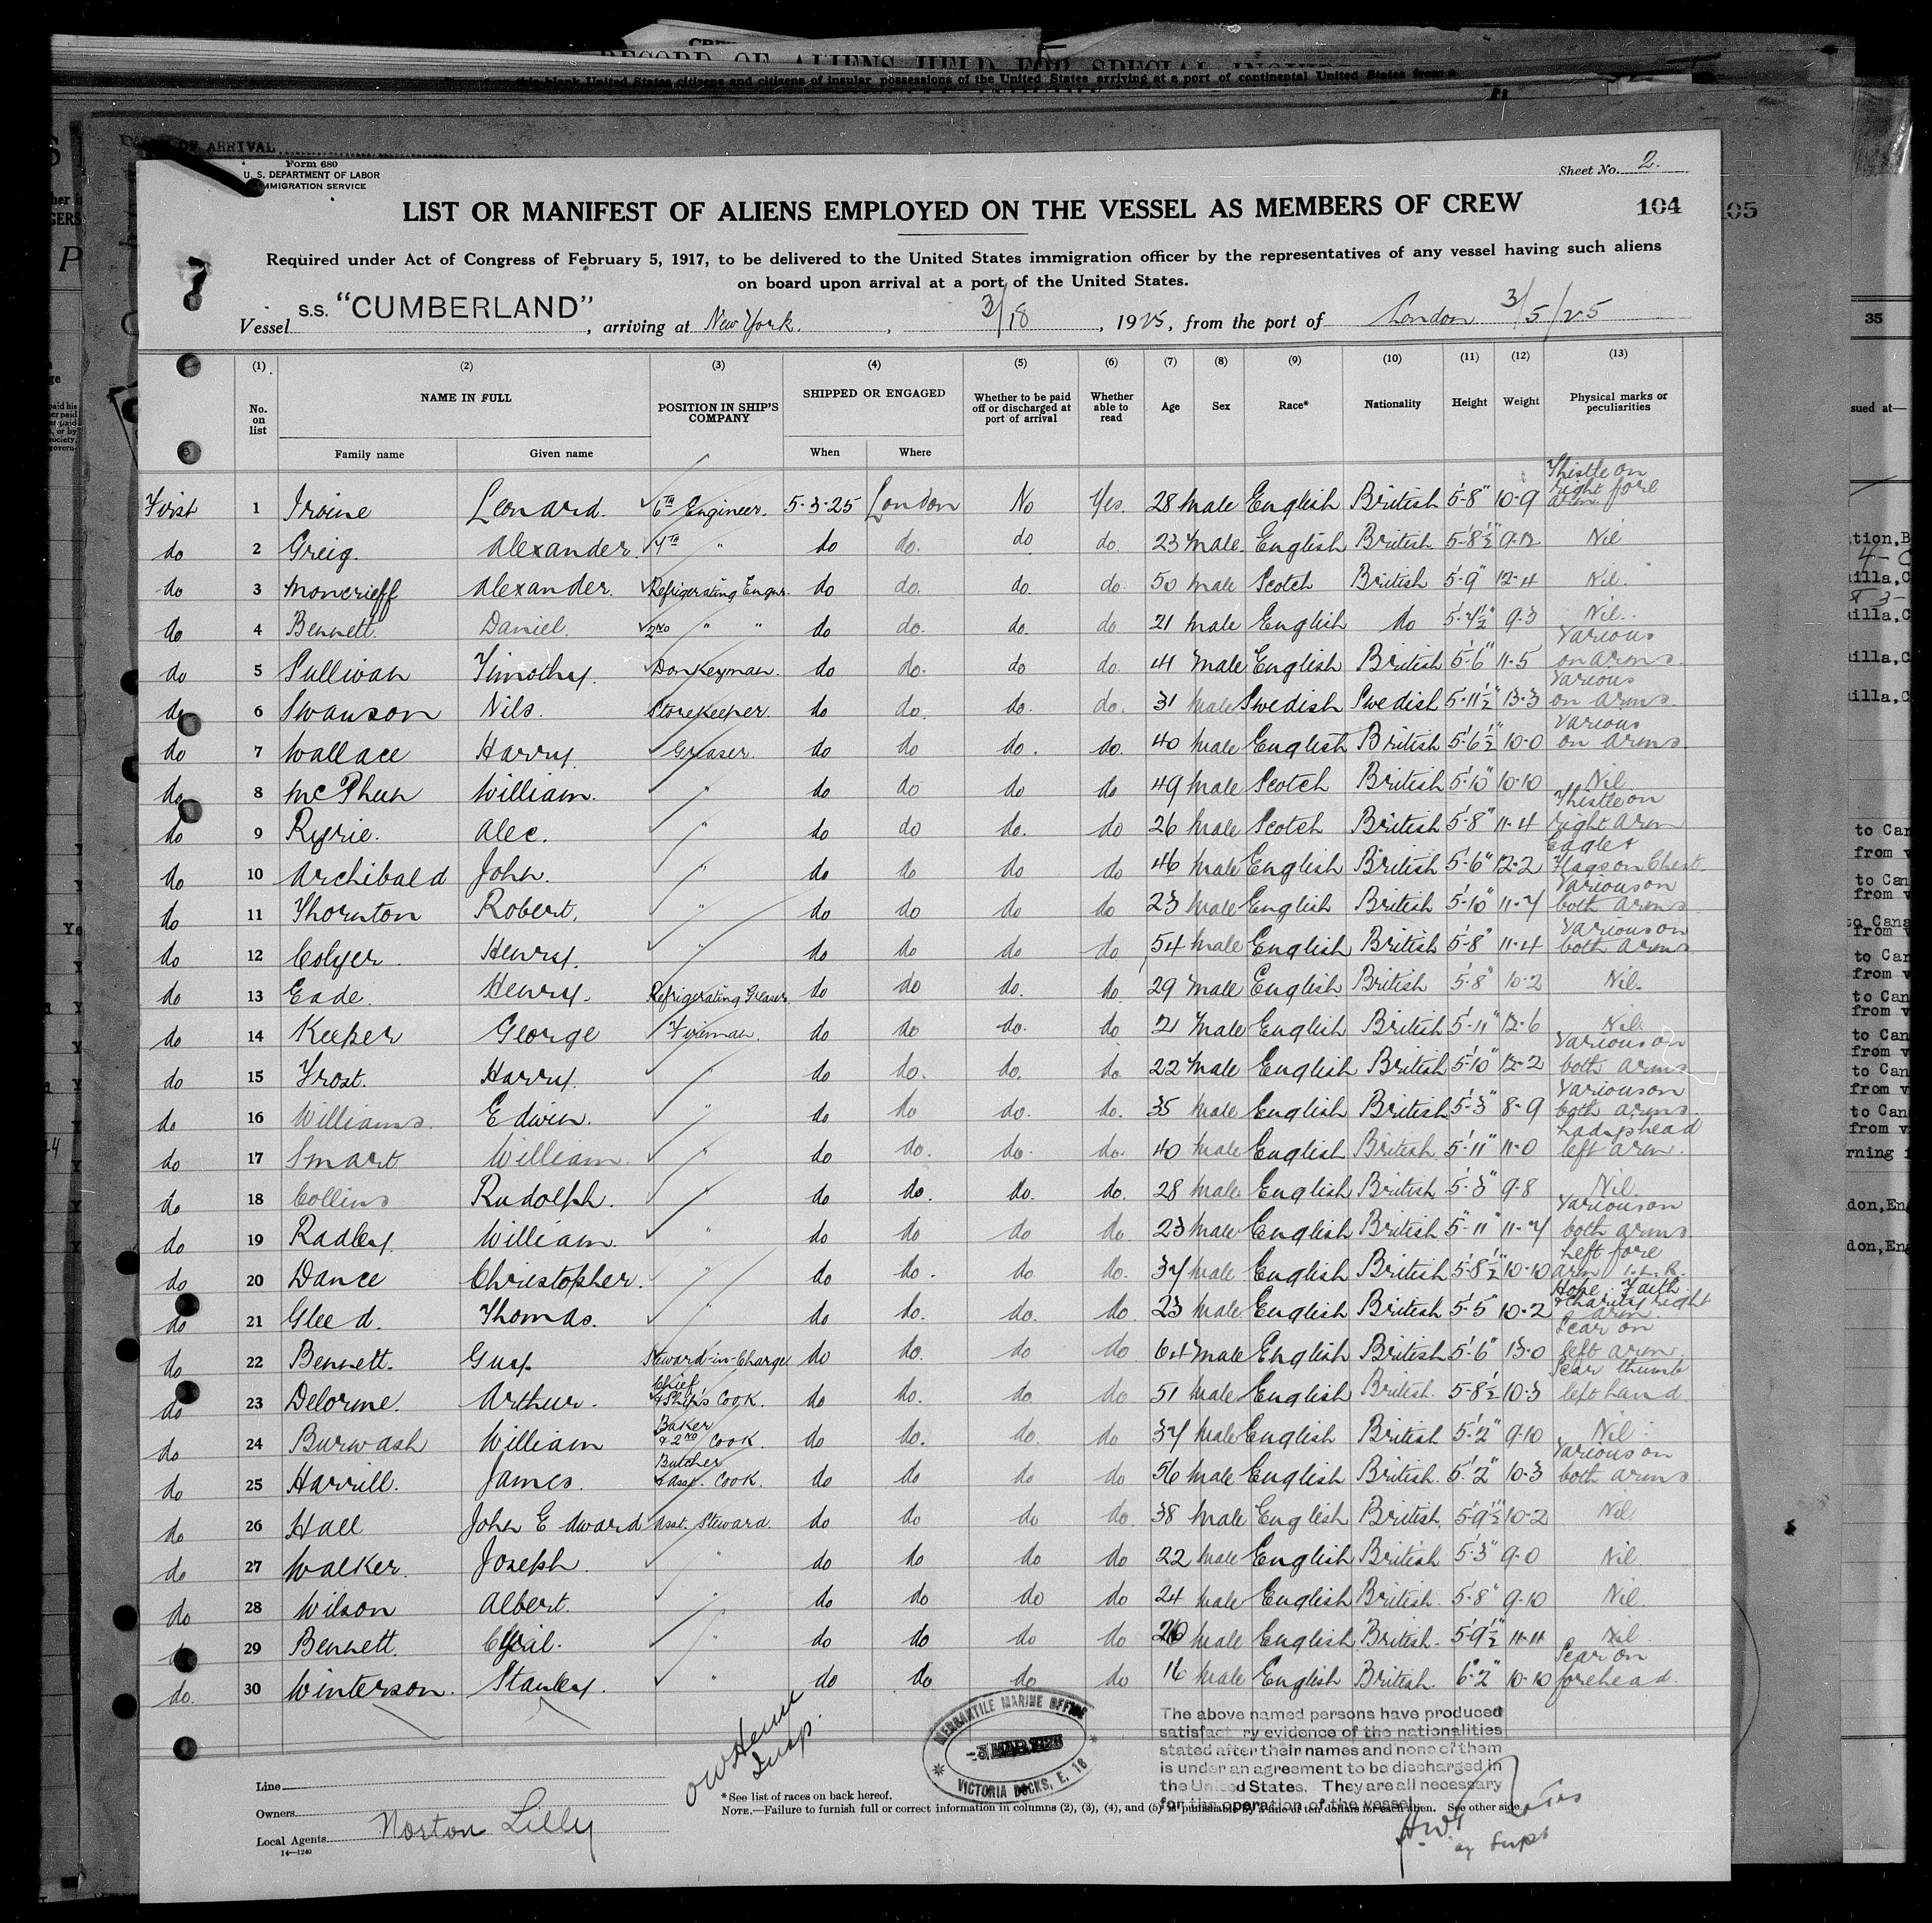 RECORD OF ALIENS HELD FOR SPECIAL INQUIRY
blank United States citizens and citizens of insular possessions of the United States arriving at a port of continental United States from a
OF ARRIVAL
Form 680
U. S. DEPARTMENT OF LABOR
IMMIGRATION SERVICE
Sheet No. 2.
LIST OR MANIFEST OF ALIENS EMPLOYED ON THE VESSEL AS MEMBERS OF CREW
104
105
Required under Act of Congress of February 5, 1917, to be delivered to the United States immigration officer by the representatives of any vessel having such aliens
on board upon arrival at a port of the United States.
Vessel S.S. "CUMBERLAND", arriving at New York., 3/18, 1925, from the port of London 3/5/25
(1) (2) (3) (4) (5) (6) (7) (8) (9) (10) (11) (12) (13)
No. on list NAME IN FULL POSITION IN SHIP'S COMPANY SHIPPED OR ENGAGED Whether to be paid off or discharged at port of arrival Whether able to read Age Sex Race* Nationality Height Weight Physical marks or peculiarities
Family name Given name When Where
First 1 Irvine Leonard. 6TH Engineer. 5-3-25 London No Yes. 28 Male English British 5'-8" 10-9 Thistle on right fore arm
do 2 Greig. Alexander. 7TH " do do. do do. 23 Male English British. 5'-8½" 9-12 Nil
do 3 Moncrieff Alexander. Refrigerating Engnr. do do. do. do. 50 Male Scotch British 5'-9" 12-4 Nil.
do 4 Bennett. Daniel. 2ND " " do do. do. do 21 Male English do 5'-7½" 9-3 Nil.
do 5 Sullivan Timothy. Donkeyman. do do. do do. 41 Male English British 5'-6" 11-5 Various on arms.
do 6 Swanson Nils. Storekeeper. do do. do. do. 31 Male Swedish Swedish 5-11½" 13-3 Various on arms.
do 7 Wallace Harry. Greaser. do do do. do. 40 Male English British 5'-6½" 10-0 Various on arms.
do 8 McPhun William. " do do do do 49 Male Scotch British 5'-10" 10-10 Nil.
do 9 Ryrie. Alec. " do do do. do 26 Male Scotch British 5'-8" 11-4 Thistle on right arm
do 10 Archibald John. " do do do do 46 Male English British 5'-6" 12-2 Eagle + Flags on Chest.
do 11 Thornton Robert. " do do do do 23 Male English British 5'-10" 11-7 Various on both arms.
do 12 Colyer. Henry. " do do do do 54 Male English British 5'-8" 11-4 Various on both arms
do 13 Eade. Henry. Refrigerating Greaser do do do. do. 29 Male English British 5'-8" 10-2 Nil.
do 14 Keeper George Fireman. do do do. do 21 Male English British 5'-11" 12-6 Nil.
do 15 Frost. Harry. " do do. do. do. 22 Male English British 5'-10" 12-2 Various on both arms
do 16 Williams. Edwin. " do do do. do. 35 Male English British 5'-3" 8-9 Various on both arms.
do 17 Smart William. " do do. do. do. 40 Male English British. 5'-11" 11-0 Ladys head left arm.
do 18 Collins Rudolph. " do do. do. do. 28 Male English British 5'-3" 9-8 Nil.
do 19 Radley. William. " do do do do. 23 Male English British 5"-11" 11-7 Various on both arms
do 20 Dance Christopher. " do do. do. do. 37 Male English British 5'-8½" 10-10 Left fore arm
do 21 Gleed. Thomas. " do do. do. do. 23 Male English British 5'-5" 10-2 Hope Faith + Charity right arm.
do 22 Bennett. Guy. Steward-in-Charge do do. do do. 64 Male English British 5'-6" 13-0 Scar on left arm.
do 23 Delorme. Arthur. Chief & Ships Cook. do do. do do 51 Male English British. 5-8½ 10-3 Scar thumb left hand
do 24 Burwash William Baker & 2ND Cook. do do. do do 37 Male English British 5'-2" 9-10 Nil.
do 25 Harrill. James. Butcher & Asst. Cook. do do do do 56 Male English British. 5'-2" 10-3 Various on both arms.
do 26 Hall John Edward Asst. Steward. do do do do. 38 Male English British. 5'-9½" 10-2 Nil.
do 27 Walker. Joseph. " do do do do 22 Male English British 5'-3" 9-0 Nil.
do 28 Wilson Albert. " do do do do 24 Male English British. 5'-8" 9-10 Nil.
do 29 Bennett. Cyril. " do do do do Male English British. 5'-9½" 11-11 Nil.
do. 30 Winterson. Stanley. " do do do do 16 Male English British. 6'-2" 10-10 Scar on forehead.
Insp.
MERCANTILE MARINE OFFICE
VICTORIA DOCKS, E. 16
The above named persons have produced
satisfactory evidence of the nationalities
stated after their names and none of them
is under an agreement to be discharged in
the United States. They are all necessary
for the operation of the vessel
Line
Owners
Local Agents Norton Lilly
14—1240
*See list of races on back hereof.
NOTE.—Failure to furnish full or correct information in columns (2), (3), (4), and (5) is punishable by a fine of ten dollars for each alien. See other side.
Supt